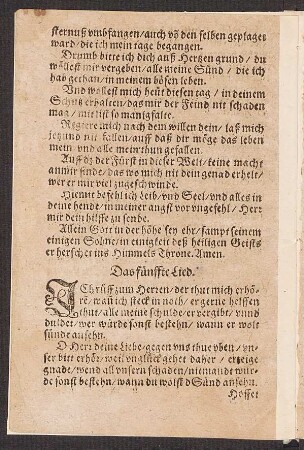 sternuß vmbfangen/auch võ den selben geplaget
ward/die ich mein tage begangen.
Drumb bitte ich dich auß Hertzen grund/ du
wöllest mir vergeben/alle meine Sünd / die ich
hab gethan/in meinem bösen leben.
Vnd wöllest mich heut diesen tag / in deinem
Schutz erhalten/das mir der Feind nit schaden
mag/mit list so manigfalte.
Regiere mich nach dem willen dein/ laß mich
jetzund nit fallen/auff daß dir möge das leben
mein vnd alle mein thun gefallen.
Auff dz der Fürst in dieser Welt/keine macht
an mir finde/das wo mich nit dein genad erhelt/
wer er mir viel zu geschwinde.
Hiemit befehl ich Leib/vnd Seel/vnd alles in
deine hende/in meiner angst vor vngefehl/Herr
mir dein hilffe zu sende.
Allein Gott in der höhe sey ehr/sampt seinem
einigen Sohne/in einigkeit deß heiligen Geists
er herschet ins Himmels Throne. Amen.
Das fünffte Lied.
ICh rüff zum Herren/der thut mich erhö-
re/wañ ich steck in noth/er gerne helffen
thut/alle meine schulde/er vergibt/vnnd
duldet/wer würde sonst bestehn/wann er wolt
sünde ansehn.
O Herr deine Liebe/gegen vns thue vben/vn-
ser bitt erhör/weil vnglück gehet daher / erzeige
gnade/wend all vnsern schaden/niemandt wür-
de sonst bestehn/wann du wolst d Sünd ansehn.
Hoffet